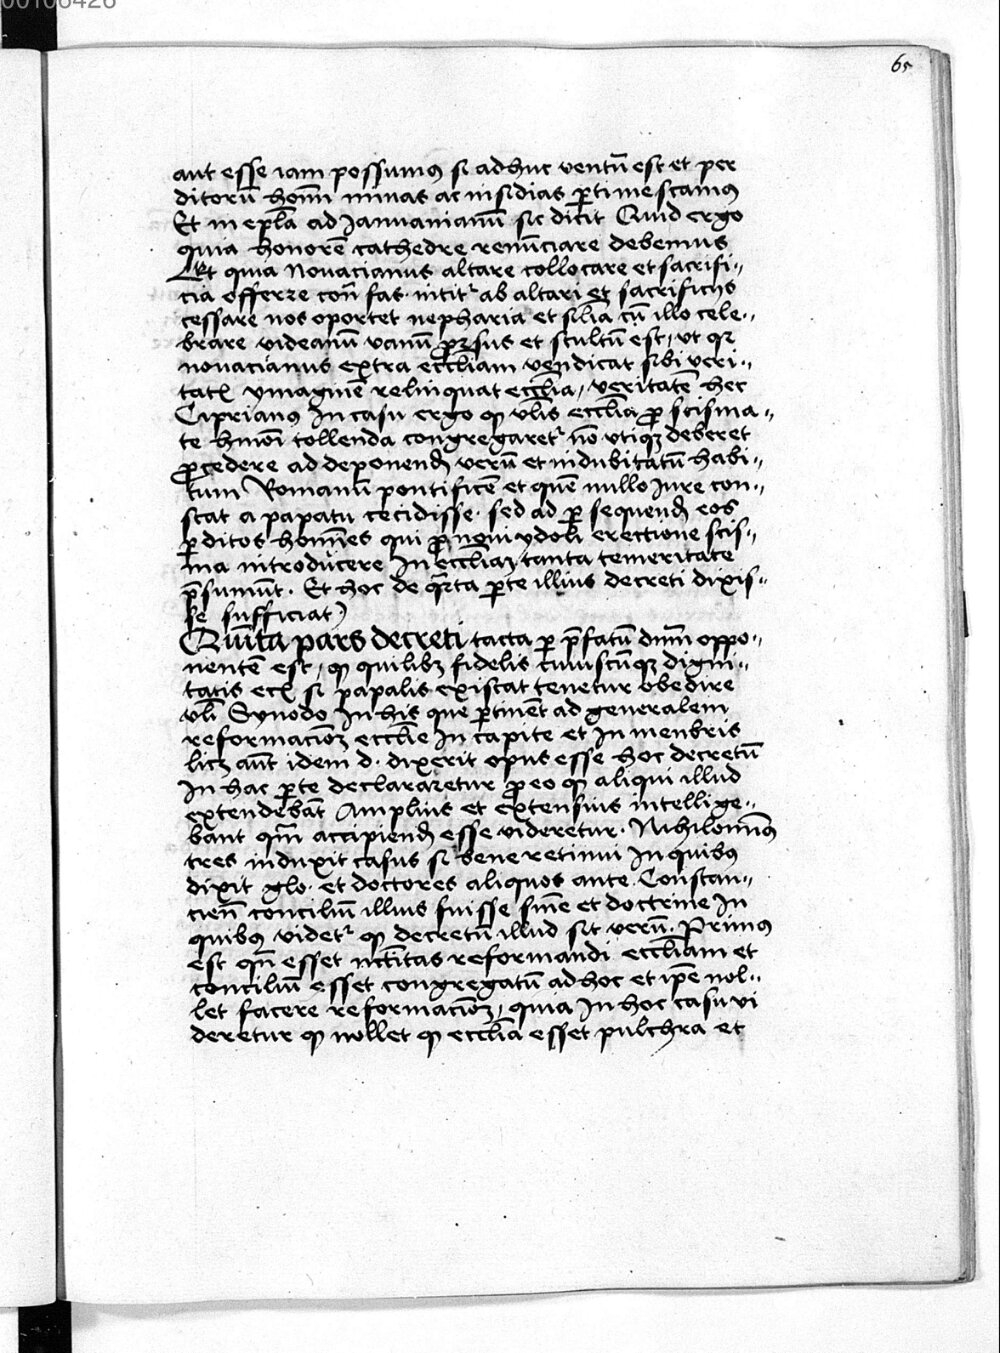 00106426
65
aut esse iam possumus si adhuc ventū est et per
ditorū homī minas ac insidias ptimescamus
Et in epla ad Januarianū sic dicit Quid ergo
quia honorē cathedre renūciare debemus
Et quia Novacianus altare collocare et sacrifi„
cia offerre con̄ fas nitit² ab altari et sacrificijs
cessare nos oportet nepharia et silia cū illo cele„
brare videamū vanū prorsus et stultū est, ut qr
novacianus extra eccliam vendicat sibi veri„
tatꝭ ymaginē relinquat ecclia, veritatē hec
Ciprianus In casu ergo ꝙ vlis ecclia ꝓ scisma„
te hmōi tollenda congregaret² nō utiqꝫ deberet
ꝓcedere ad deponend̄ verū et indubitatū habi„
tum Romanū pontificē et quē nullo Jure con„
stat a papatu cecidisse. sed ad ꝑsequend̄ eos
ꝑditos homīes qui ꝓ novi ydoli erectione scis„
ma introducere In eccliaꝫ tanta temeritate
p̄sumūt. Et hoc de qrta ꝑte illius decreti dixis„
se sufficiat
Quinta pars decreti tacta ꝑ p̄fatū dnm̄ oppo„
nentē est, ꝙ quilibꝫ fidelis cuiuscūqꝫ digni„
tatis ecꝭ si papalis existat tenetur obedire
vli Synodo In his que ꝑtinēt ad generalem
reformacioꝫ ecclie In capite et In menbris
licꝫ aūt idem d. dixerit opus esse hoc decretū
In hac ꝑte declararetur ꝓ eo ꝙ aliqui illud
extendebāt Amplius et extensius intellige„
bant qm̄ accipiend̄ esse videretur. Nichilominus
tres induxit casus si bene retinui In quibus
dixit glo. et doctores aliquos ante Constan„
cien̄ conciliū illius fuisse sīne et doctrine In
quibus videt² ꝙ decretū illud sit verū. Primus
est qn̄ esset nc̄citas reformandi eccliam et
conciliū esset congregatū ad hoc et ip̄e nol„
let facere reformacioꝫ, quia In hoc casu vi
deretur ꝙ nollet ꝙ ecclia esset pulchra et